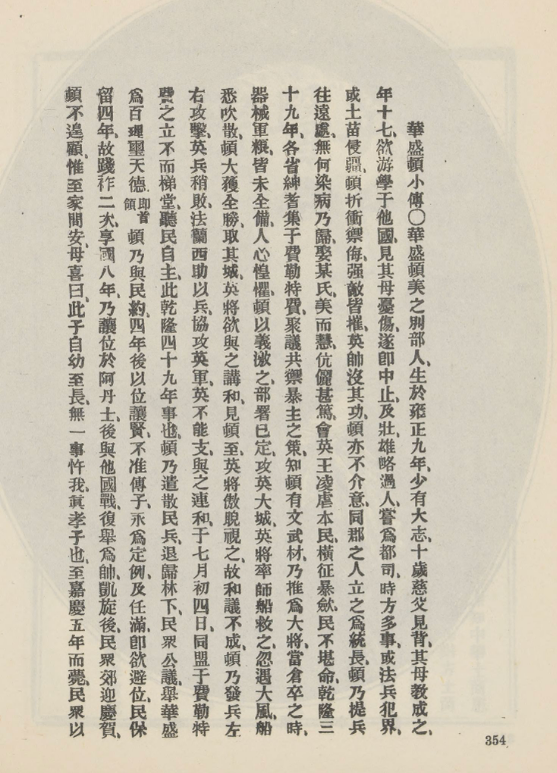 華盛頓小傳○華盛頓美之別部人、生於雍正九年、少有大志、十歲慈父見背、其母教成之、
年十七、欲游學于他國、見其母憂傷、遂卽中止、及壯雄略過人、嘗爲都司、時方多事、或法兵犯界、
或土苗侵疆、頓折衝禦侮、强敵皆摧、英帥沒其功、頓亦不介意、同郡之人立之爲統長、頓乃提兵
往遠處、無何染病乃歸、娶某氏美而慧、伉儷甚篤、會英王凌虐本民、橫征暴斂、民不堪命、乾隆三
十九年、各省紳耆集于費勒特費、聚議共禦暴主之策、知頓有文武材、乃推爲大將、當倉卒之時、
器械軍糗、皆未全備、人心惶懼、頓以義激之、部署已定、攻英大城、英將率師船救之、忽遇大風、船
悉吹散、頓大獲全勝、取其城、英將欲與之講和、見頓至、英將傲睨視之、故和議不成、頓乃發兵左
右攻擊、英兵稍敗、法蘭西助以兵、協攻英軍、英不能支、與之連和、于七月初四日、同盟于費勒特
費之立不而梯堂、聽民自主、此乾隆四十九年事也、頓乃遣散民兵、退歸林下、民眾公議、舉華盛
爲百理璽天德、卽首領 頓乃與民約、四年後以位讓賢、不准傳子、永爲定例、及任滿、卽欲避位、民保
留四年、故踐祚二次、享國八年、乃讓位於阿丹士、後與他國戰、復舉爲帥、凱旋後、民眾郊迎慶賀、
頓不遑顧、惟至家問安、母喜曰、此子自幼至長、無一事忤我、眞孝子也、至嘉慶五年而薨、民眾以
354